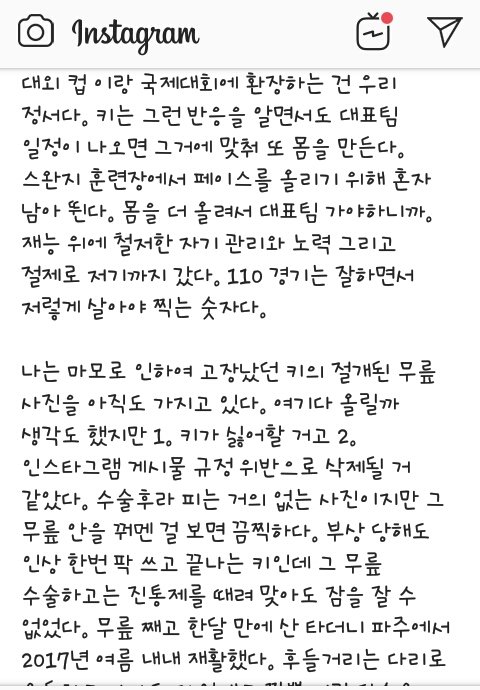 Instagram
대외 컵 이랑 국제대회에 환장하는 건 우리
정서다. 키는 그런 반응을 알면서도 대표팀
일정이 나오면 그거에 맞춰 또 몸을 만든다.
스완지 훈련장에서 페이스를 올리기 위해 혼자
남아 뛴다. 몸을 더 올려서 대표팀 가야하니까.
재능 위에 철저한 자기 관리와 노력 그리고
절제로 저기까지 갔다. 110 경기는 잘하면서
저렇게 살아야 찍는 숫자다.
나는 마모로 인하여 고장났던 키의 절개된 무릎
사진을 아직도 가지고 있다. 여기다 올릴까
생각도 했지만 1. 키가 싫어할 거고 2.
인스타그램 게시물 규정 위반으로 삭제될 거
같았다. 수술후라 피는 거의 없는 사진이지만 그
무릎 안을 꿔멘 걸 보면 끔찍하다. 부상 당해도
인상 한번 팍 쓰고 끝나는 키인데 그 무릎
수술하고는 진통제를 때려 맞아도 잠을 잘 수
없었다. 무릎 째고 한달 만에 산 타더니 파주에서
2017년 여름 내내 재활했다. 후들거리는 다리로